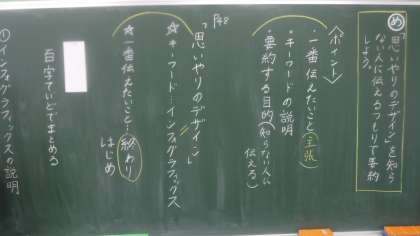 め
「思いやりのデザイン」を知ら
ない人に伝えるつもりで要約
しよう。
〈ポイント〉
・一番伝えたいこと(主張)
・キーワードの説明
・要約する目的(知らない人に
伝える)
P48
「思いやりのデザイン」
☆キーワード…インフォグラフィックス
☆一番伝えたいこと…終わり
はじめ
百字ていどでまとめる
①インフォグラフィックスの説明